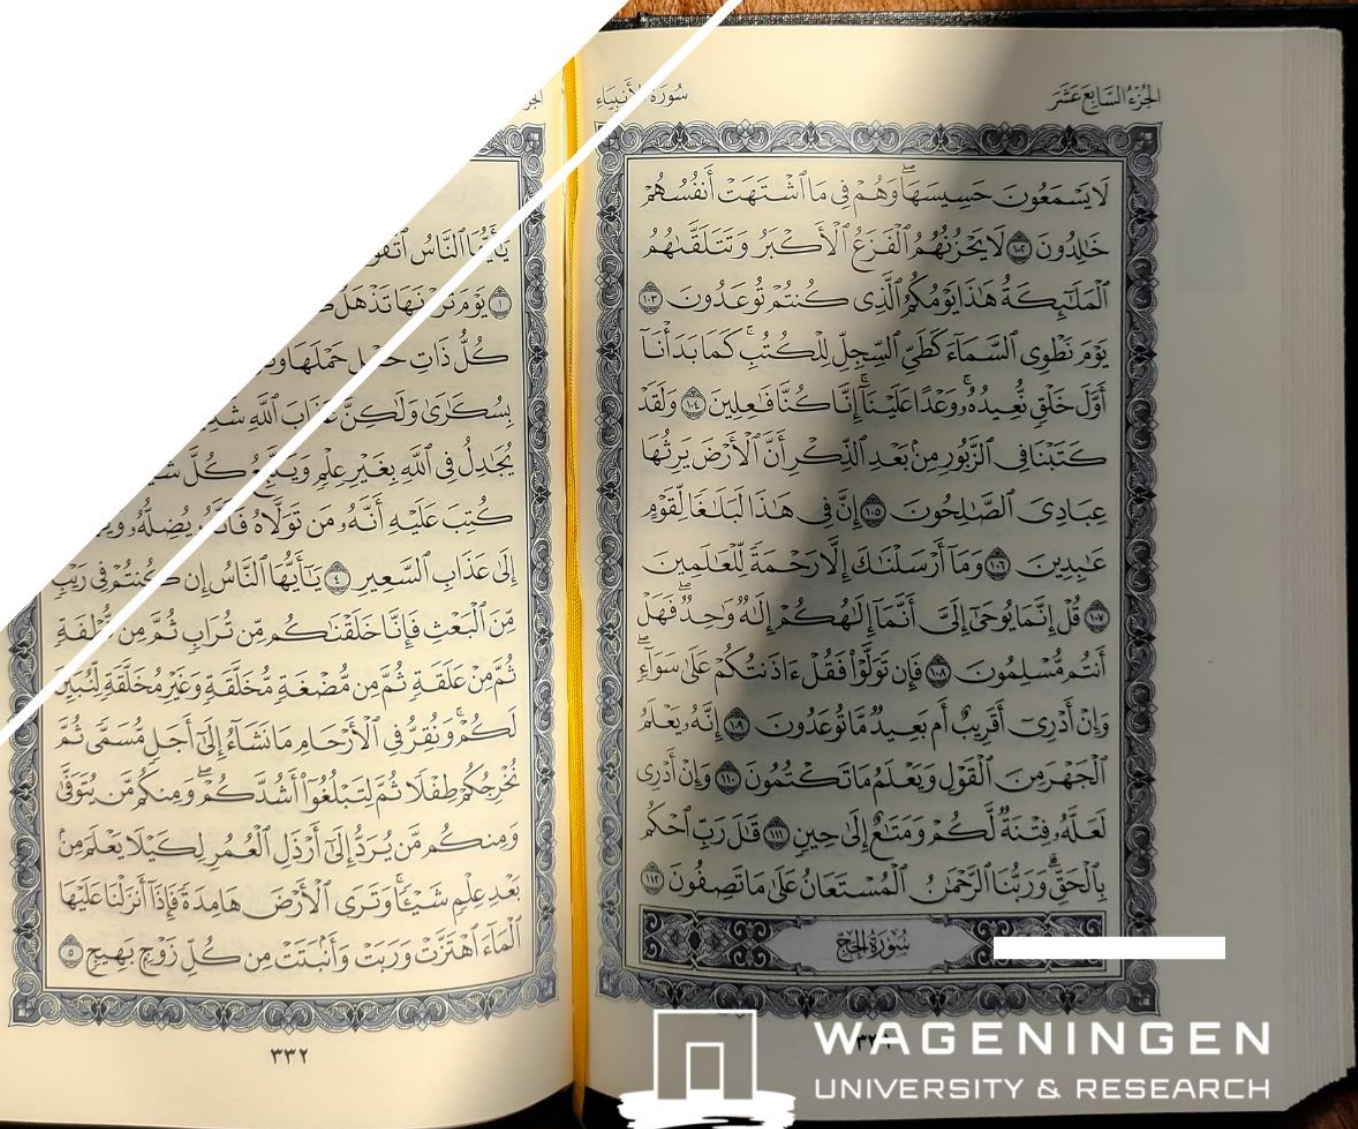 الجزء السابع عشر
سورة الأنبياء
لَا يَسْمَعُونَ حَسِيسَهَا ۖ وَهُمْ فِي مَا ٱشْتَهَتْ أَنفُسُهُمْ
خَٰلِدُونَ ١٠٢ لَا يَحْزُنُهُمُ ٱلْفَزَعُ ٱلْأَكْبَرُ وَتَتَلَقَّىٰهُمُ
ٱلْمَلَٰٓئِكَةُ هَٰذَا يَوْمُكُمُ ٱلَّذِي كُنتُمْ تُوعَدُونَ ١٠٣
يَوْمَ نَطْوِي ٱلسَّمَآءَ كَطَيِّ ٱلسِّجِلِّ لِلْكُتُبِ ۚ كَمَا بَدَأْنَآ
أَوَّلَ خَلْقٍ نُّعِيدُهُۥ ۚ وَعْدًا عَلَيْنَآ ۚ إِنَّا كُنَّا فَٰعِلِينَ ١٠٤ وَلَقَدْ
كَتَبْنَا فِي ٱلزَّبُورِ مِنۢ بَعْدِ ٱلذِّكْرِ أَنَّ ٱلْأَرْضَ يَرِثُهَا
عِبَادِيَ ٱلصَّٰلِحُونَ ١٠٥ إِنَّ فِي هَٰذَا لَبَلَٰغًا لِّقَوْمٍ
عَٰبِدِينَ ١٠٦ وَمَآ أَرْسَلْنَٰكَ إِلَّا رَحْمَةً لِّلْعَٰلَمِينَ
١٠٧ قُلْ إِنَّمَا يُوحَىٰٓ إِلَيَّ أَنَّمَآ إِلَٰهُكُمْ إِلَٰهٌ وَٰحِدٌ ۖ فَهَلْ
أَنتُم مُّسْلِمُونَ ١٠٨ فَإِن تَوَلَّوْا۟ فَقُلْ ءَاذَنتُكُمْ عَلَىٰ سَوَآءٍ ۖ
وَإِنْ أَدْرِيٓ أَقَرِيبٌ أَم بَعِيدٌ مَّا تُوعَدُونَ ١٠٩ إِنَّهُۥ يَعْلَمُ
ٱلْجَهْرَ مِنَ ٱلْقَوْلِ وَيَعْلَمُ مَا تَكْتُمُونَ ١١٠ وَإِنْ أَدْرِي
لَعَلَّهُۥ فِتْنَةٌ لَّكُمْ وَمَتَٰعٌ إِلَىٰ حِينٍ ١١١ قَٰلَ رَبِّ ٱحْكُم
بِٱلْحَقِّ ۗ وَرَبُّنَا ٱلرَّحْمَٰنُ ٱلْمُسْتَعَانُ عَلَىٰ مَا تَصِفُونَ ١١٢
سُورَةُ الحَجِّ
يَٰٓأَيُّهَا ٱلنَّاسُ
١ يَوْمَ تَذْهَلُ
كُلُّ ذَاتِ حَمْلٍ حَمْلَهَا
بِسُكَٰرَىٰ وَلَٰكِنَّ عَذَابَ ٱللَّهِ
يُجَٰدِلُ فِي ٱللَّهِ بِغَيْرِ عِلْمٍ وَيَتَّبِعُ كُلَّ
كُتِبَ عَلَيْهِ أَنَّهُۥ مَن تَوَلَّاهُ فَأَنَّهُۥ يُضِلُّهُۥ
إِلَىٰ عَذَابِ ٱلسَّعِيرِ ٤ يَٰٓأَيُّهَا ٱلنَّاسُ إِن كُنتُمْ فِي رَيْبٍ
مِّنَ ٱلْبَعْثِ فَإِنَّا خَلَقْنَٰكُم مِّن تُرَابٍ ثُمَّ مِن نُّطْفَةٍ
ثُمَّ مِنْ عَلَقَةٍ ثُمَّ مِن مُّضْغَةٍ مُّخَلَّقَةٍ وَغَيْرِ مُخَلَّقَةٍ لِّنُبَيِّنَ
لَكُمْ ۚ وَنُقِرُّ فِي ٱلْأَرْحَامِ مَا نَشَآءُ إِلَىٰٓ أَجَلٍ مُّسَمًّى ثُمَّ
نُخْرِجُكُمْ طِفْلًا ثُمَّ لِتَبْلُغُوٓا۟ أَشُدَّكُمْ ۖ وَمِنكُم مَّن يُتَوَفَّىٰ
وَمِنكُم مَّن يُرَدُّ إِلَىٰٓ أَرْذَلِ ٱلْعُمُرِ لِكَيْلَا يَعْلَمَ مِنۢ
بَعْدِ عِلْمٍ شَيْـًٔا ۚ وَتَرَى ٱلْأَرْضَ هَامِدَةً فَإِذَآ أَنزَلْنَا عَلَيْهَا
ٱلْمَآءَ ٱهْتَزَّتْ وَرَبَتْ وَأَنۢبَتَتْ مِن كُلِّ زَوْجٍۭ بَهِيجٍ ٥
٣٣٢
WAGENINGEN
UNIVERSITY & RESEARCH